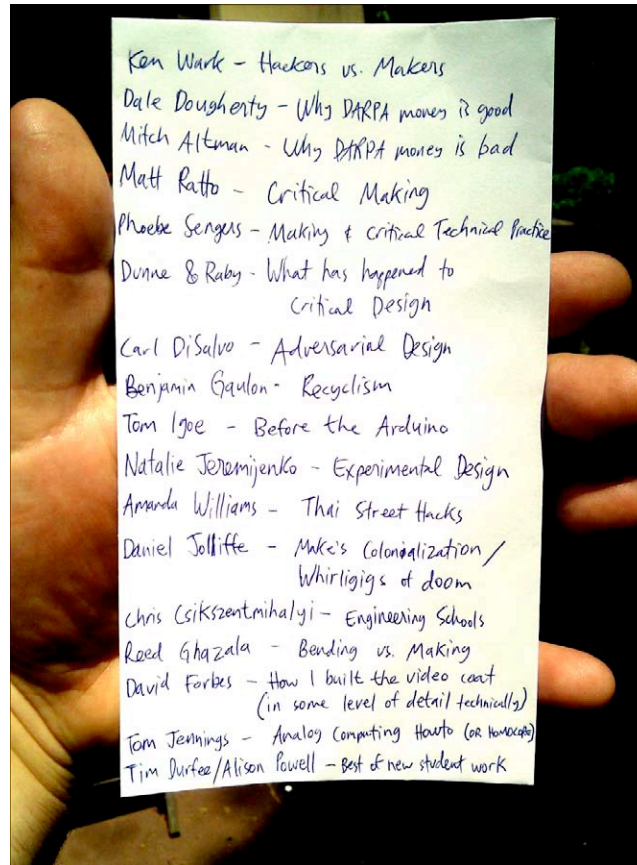 Ken Wark - Hackers vs. Makers
Dale Dougherty - Why DARPA money is good
Mitch Altman - Why DARPA money is bad
Matt Ratto - Critical Making
Phoebe Sengers - Making & Critical Technical Practice
Dunne & Raby - What has happened to
Critical Design
Carl DiSalvo - Adversarial Design
Benjamin Gaulon - Recyclism
Tom Igoe - Before the Arduino
Natalie Jeremijenko - Experimental Design
Amanda Williams - Thai Street Hacks
Daniel Jolliffe - Make's Colonialization /
Whirligigs of doom
Chris Csikszentmihalyi - Engineering Schools
Reed Ghazala - Bending vs. Making
David Forbes - How I built the video coat
(in some level of detail technically)
Tom Jennings - Analog Computing Howto (OR HOMOCORE)
Tim Durfee/Alison Powell - Best of new student work